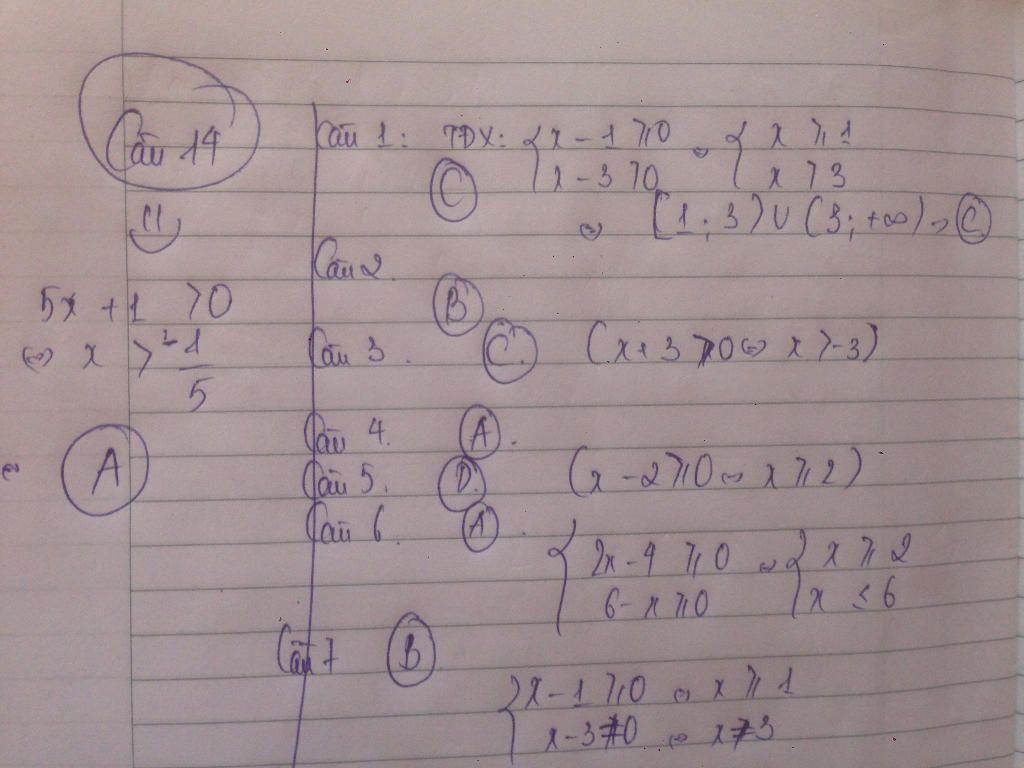 Câu 14
5x + 1 > 0
⇔ x > -1/5
⇔ A
Câu 1: TDX: { x - 1 ⩾ 0 ⇔ { x ⩾ 1
C x - 3 > 0 x > 3
⇔ [1; 3) ∪ (3; +∞) → C
Câu 2.
B
Câu 3. C. (x + 3 > 0 ⇔ x > -3)
Câu 4. A.
Câu 5. D. (x - 2 ⩾ 0 ⇔ x ⩾ 2)
Câu 6. A.
{ 2x - 4 ⩾ 0 ⇔ { x ⩾ 2
6 - x ⩾ 0 x ≤ 6
Câu 7 B
{ x - 1 ⩾ 0 ⇔ x ⩾ 1
x - 3 ≠ 0 ⇔ x ≠ 3